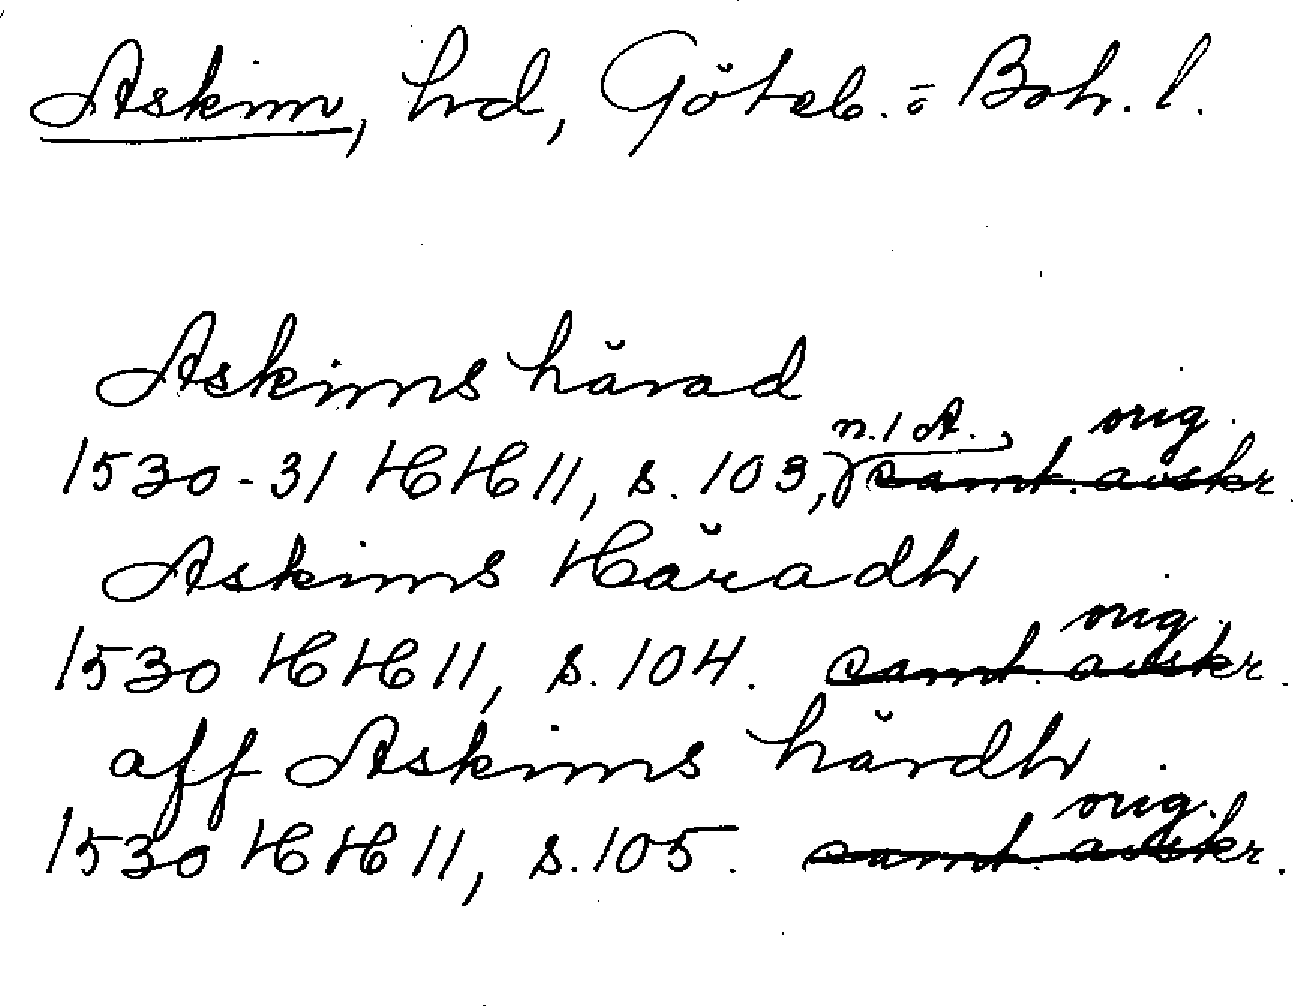 Askim, hd, Göteb. o. Boh. l.
Askims härad
n. 1 A., orig.
1530-31 HH 11, s. 103, samt. avskr.
Askims Häradh
orig.
1530 HH 11, s. 104. samt. avskr.
aff Askims härdh
orig.
1530 HH 11, s. 105. samt. avskr.